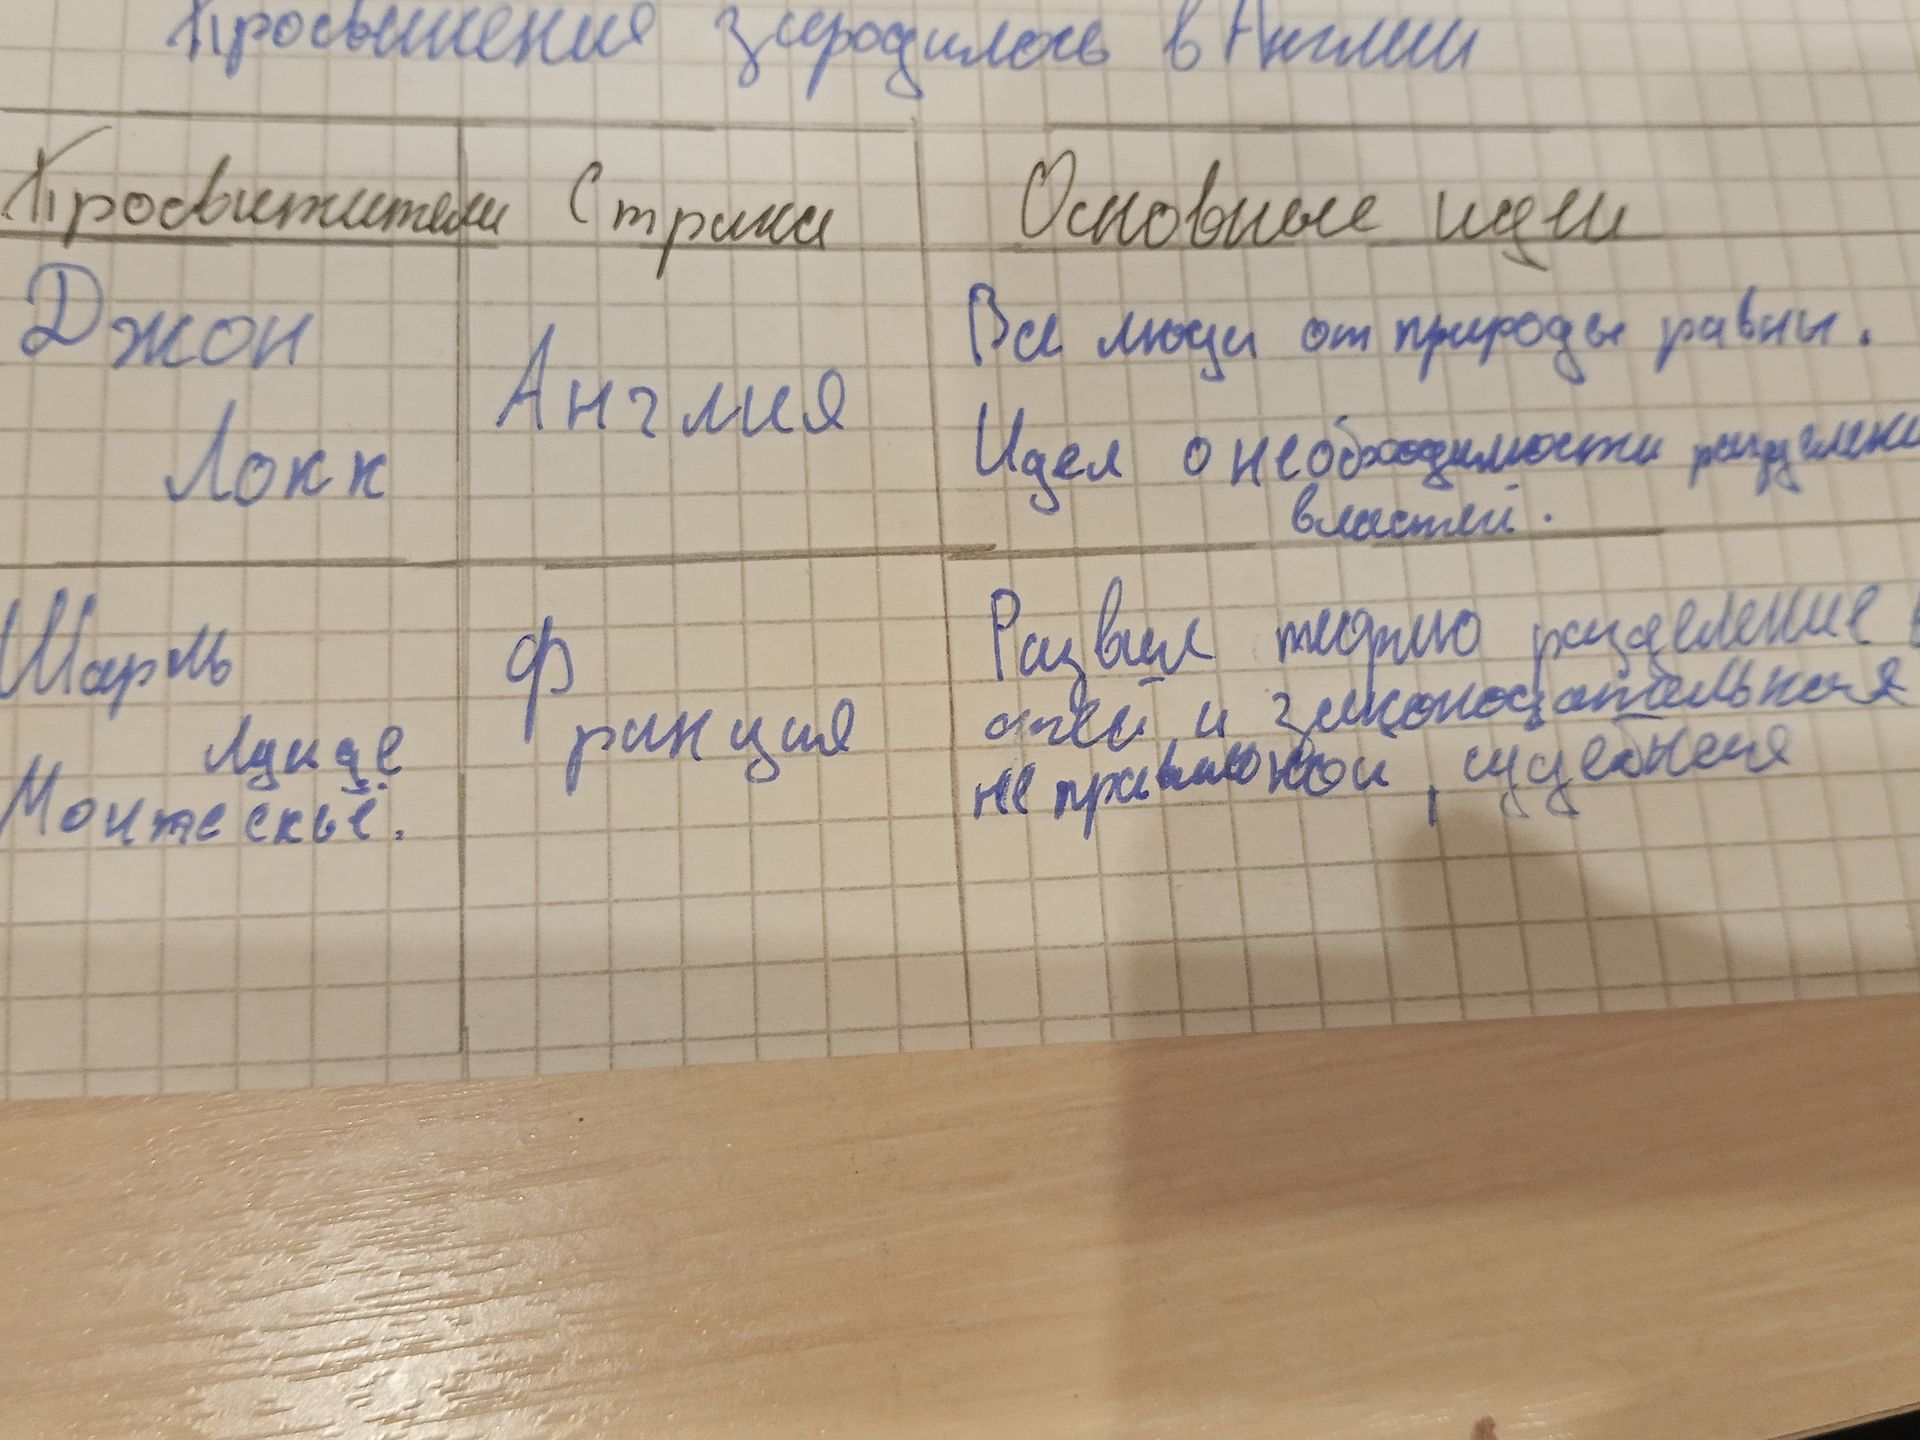 Просвещения зародилось в Англии
Просветители Страна Основные идеи
Джон
Локк
Англия
Все люди от природы равны.
Идея о необходимости разделени
властей.
Шарль
Луи де
Монтескьё.
Ф
ранция
Развил теорию разделение в
астей и законодательная
не правительной, судебная